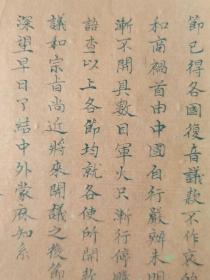 節已得各國復音議款不作哀的
和商禍首由中國自行嚴辦未明
漸不開具數目軍火只漸行停購
詰查以上各節均就各使所開款
議和宗旨尚近將來開議之後節
深望早日了結中外蒙庥知系